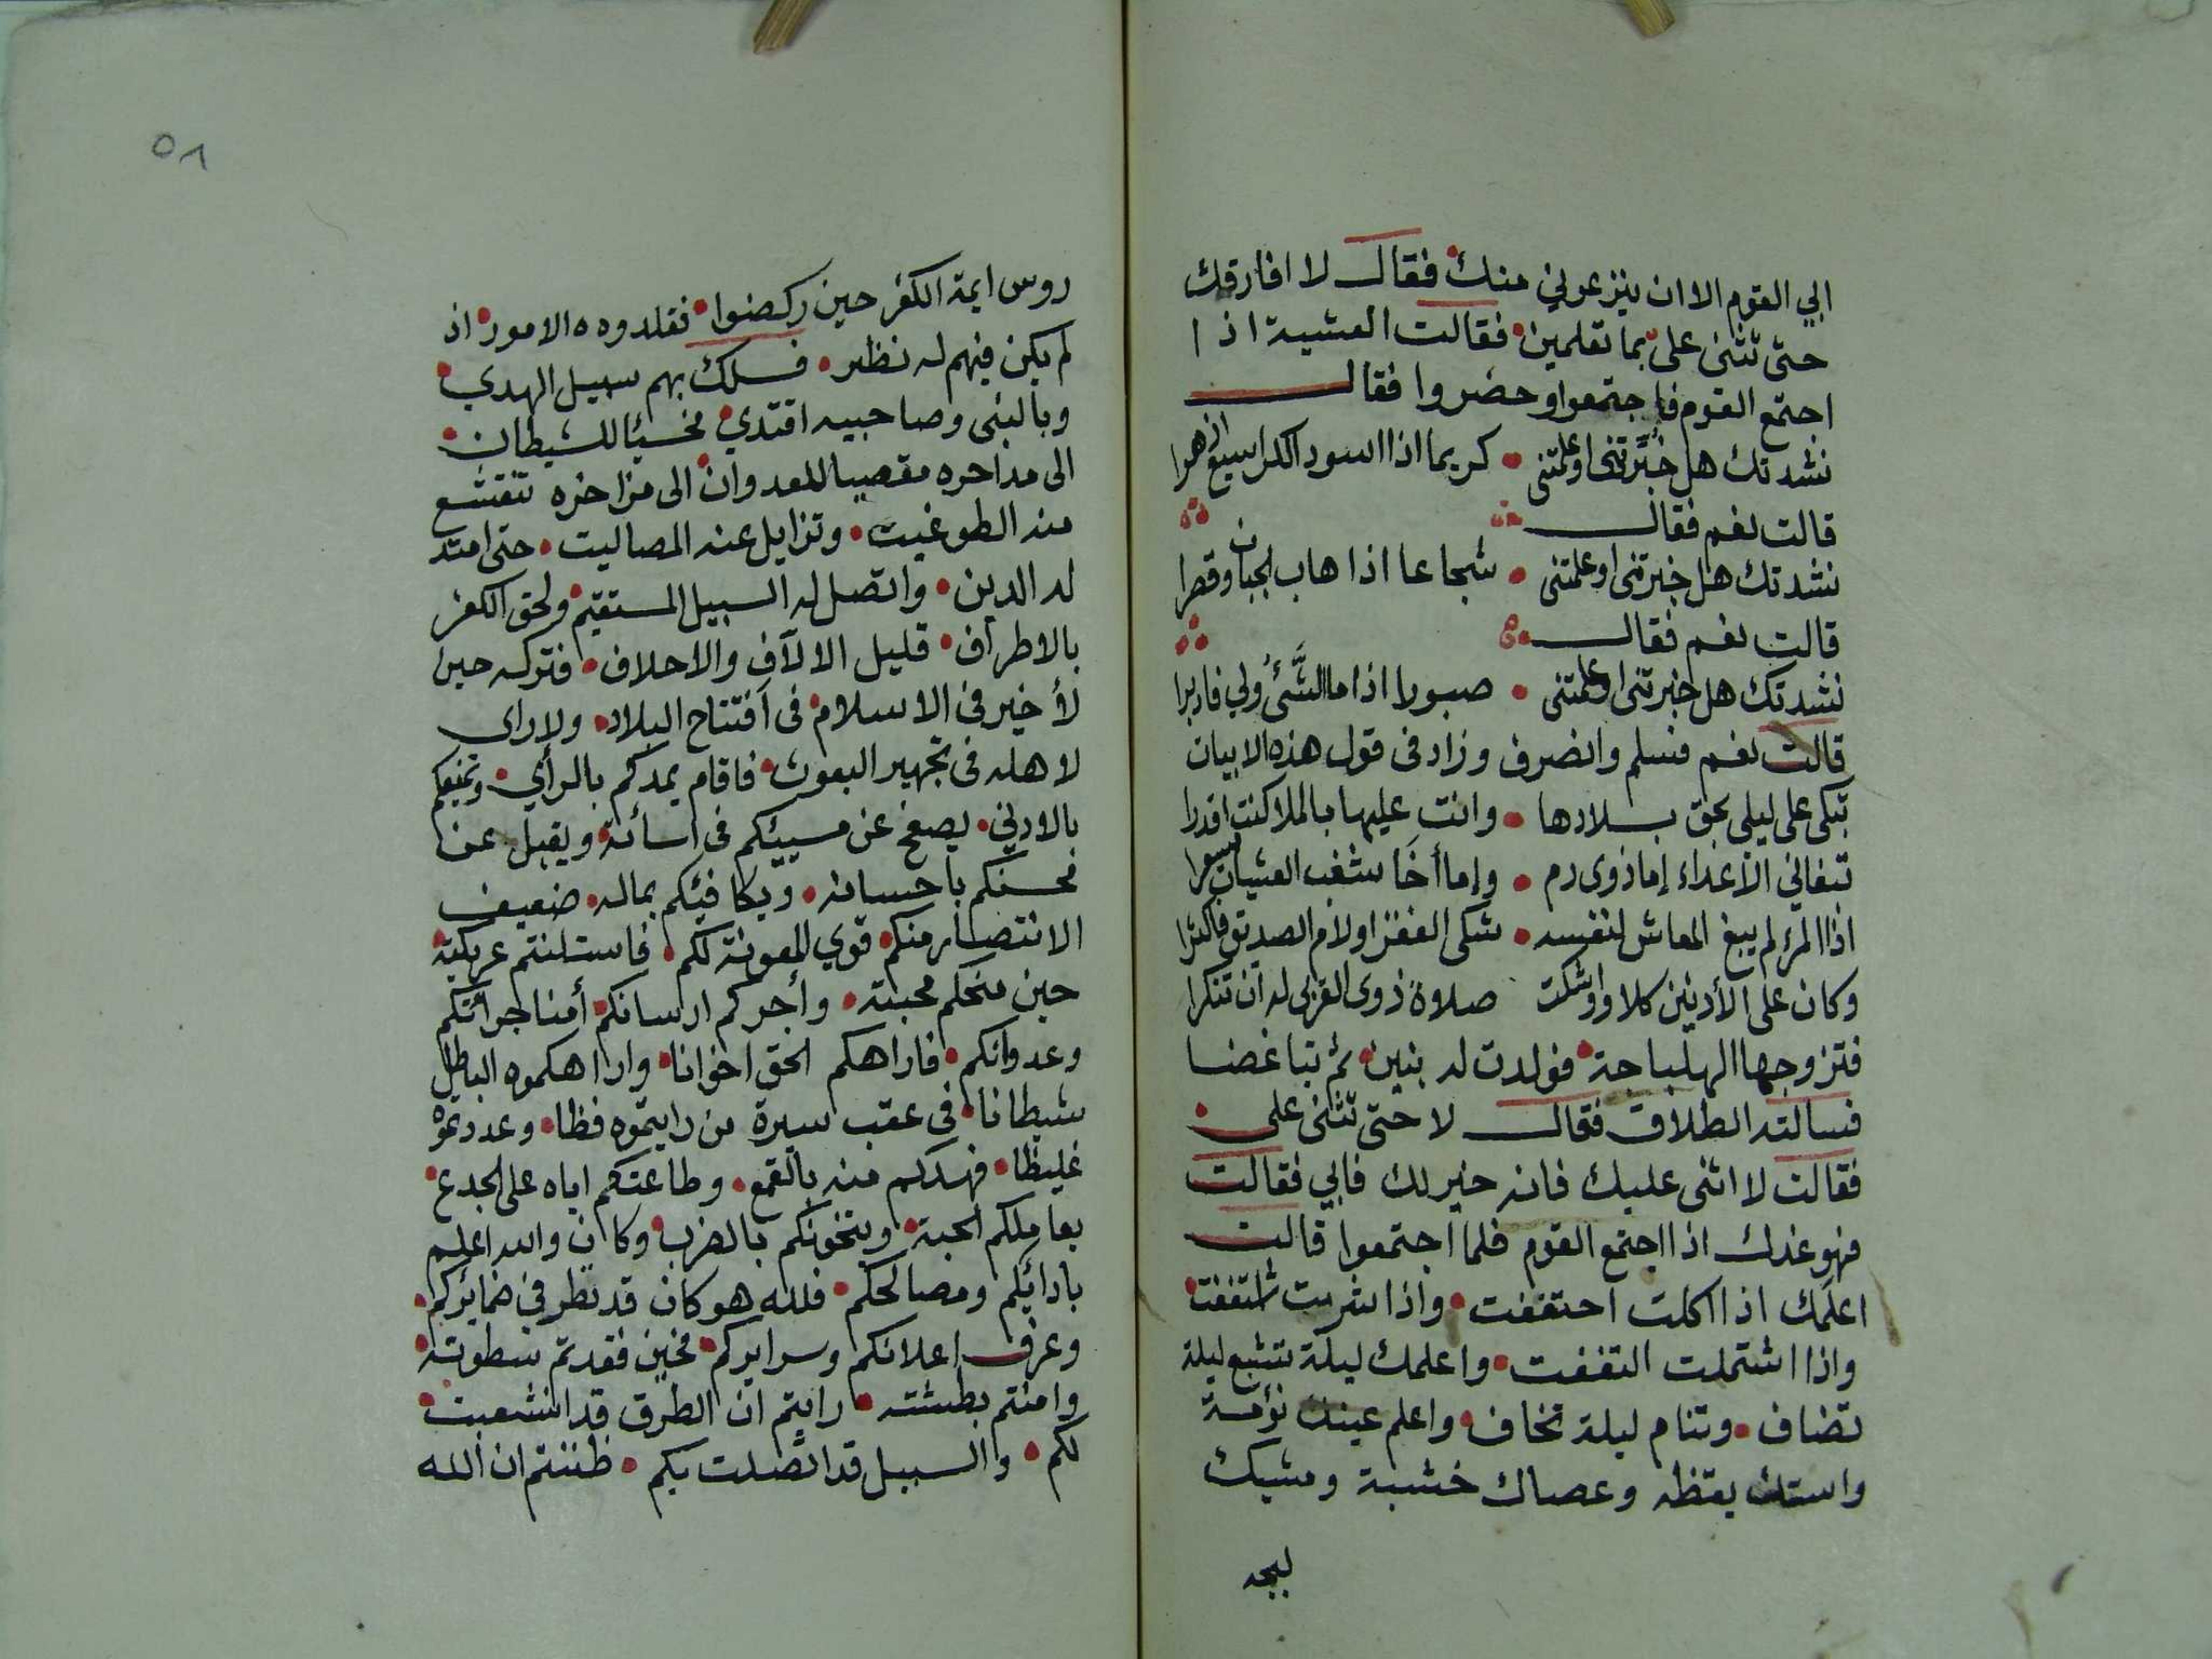 الي القوم الا ان ينزعوني منك فقال لا افارقك
حتى تثنى على بما تعلمين فقالت العشية اذا
اجتمع القوم فاجتمعوا وحضروا فقال
نشدتك هل خبرتنى اوعلمتنى كريما اذا اسود الكراسيع ازهرا
قالت نعم فقال
نشدتك هل خبرتنى اوعلمتنى شجاعا اذا هاب الجبان وقصرا
قالت نعم فقال
نشدتك هل خبرتنى اوعلمتنى صبورا اذا ما الشئ ولي فادبرا
قالت نعم فسلم وانصرف وزاد فى قول هذه الابيات
تبكى على ليلى بحق بلادها وانت عليها بالملا كنت اقدرا
تبغاني الاعداء إما ذوى دم وإما أخا شغب العشيات
اذا المرء لم يبغ المعاش لنفسه شكى الفقر اولام الصديق فاكثرا
وكان على الأدنين كلا واوشكت صلاوة ذوى القربى له ان تنكرا
فتزوجها الهلباجة فولدت له بنين ثم تباغضا
فسالته الطلاق فقال لا حتى تثنى على
فقالت لا اثنى عليك فانه خير لك فابي فقالت
فهو غدك اذا اجتمع القوم فلما اجتمعوا قالت
اعلمك اذا اكلت احتففت واذا شربت اشتففت
واذا اشتملت التففت واعلمك ليلة تشبع ليلة
تضاف وتنام ليلة تخاف واعلم عينك نؤمة
واستك يقظه وعصاك خشبة ومشيك
لبجه
٥٨
روس ايمة الكفر حين ركضوا فقلدوه الامور اذ
لم يكن فيهم له نظير فسلك بهم سبيل الهدي
وبالبنى وصاحبيه اقتدي مخسئا للشيطان
الى مداحره مقصيا للعدوان الى مزاحزه تتقشع
منه الطوغيت وتزايل عنه المصاليت حتى امتد
له الدين واتصل له السبيل المستقيم ولحق الكفر
بالاطراف قليل الالآف والاحلاف فتركه حين
لا خير فى الاسلام فى افتتاح البلاد ولا راى
لاهله فى تجهيز البعوث فاقام يمدكم بالراي ويمنعكم
بالادني يصفح عن مسيئكم فى اسائة ويقبل عن
محسنكم باحسانه ويكافيئكم بماله ضعيف
الانتصار منكم قوي المعونة لكم فاستلنتم عريكته
حين منحكم محبته وأجركم ارسانكم أمنا جرأتكم
وعدوانكم فاراهكم الحق اخوانا واراهكموه الباطل
شيطانا فى عقب سيرة من رايتموه فظا وعددتموه
غليظا فهدكم منه بالقمع وطاعتكم اياه على الجدع
يعاملكم الحبة ويتخونكم بالضرب وكان والله اعلم
بادائكم ومصالحكم فلله هو كان قد نظر في ضمايركم
وعرف اعلانكم وسرايركم فحين فقدتم سطوته
وامنتم بطشته رايتم ان الطرق قد انشعبت
لكم والسبيل قد اتصلت بكم ظننتم ان الله